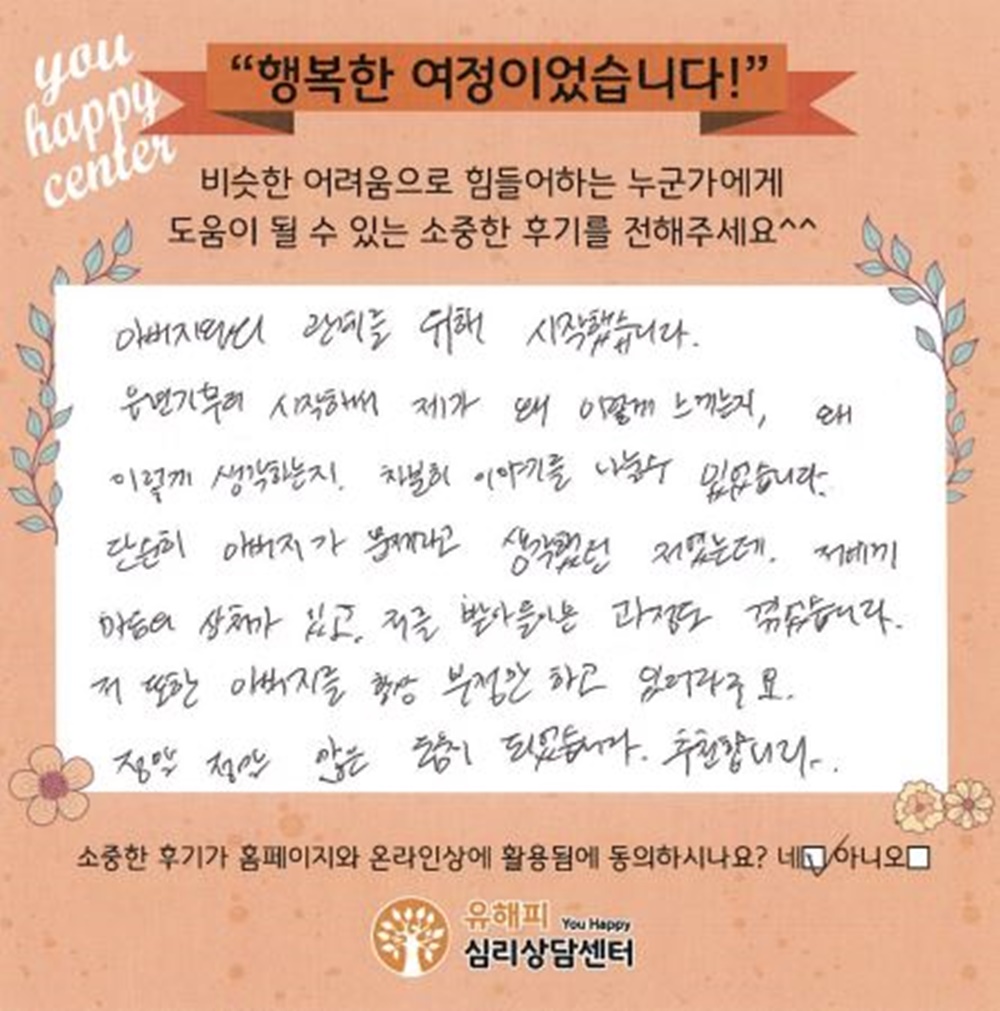 you
happy
center
“행복한 여정이었습니다!”
비슷한 어려움으로 힘들어하는 누군가에게
도움이 될 수 있는 소중한 후기를 전해주세요^^
아버지와의 관계를 위해 시작했습니다.
유년기부터 시작해서 제가 왜 이렇게 느끼는지, 왜
이렇게 생각하는지. 차분히 이야기를 나눌수 있었습니다.
단순히 아버지가 문제라고 생각했던 저였는데. 저에게
마음의 상처가 있고, 저를 받아들이는 과정도 겪었습니다.
저 또한 아버지를 항상 부정만 하고 있더라구요.
정말 정말 많은 도움이 되었습니다. 추천합니다..
소중한 후기가 홈페이지와 온라인상에 활용됨에 동의하시나요? 네 아니오
유해피 You Happy
심리상담센터